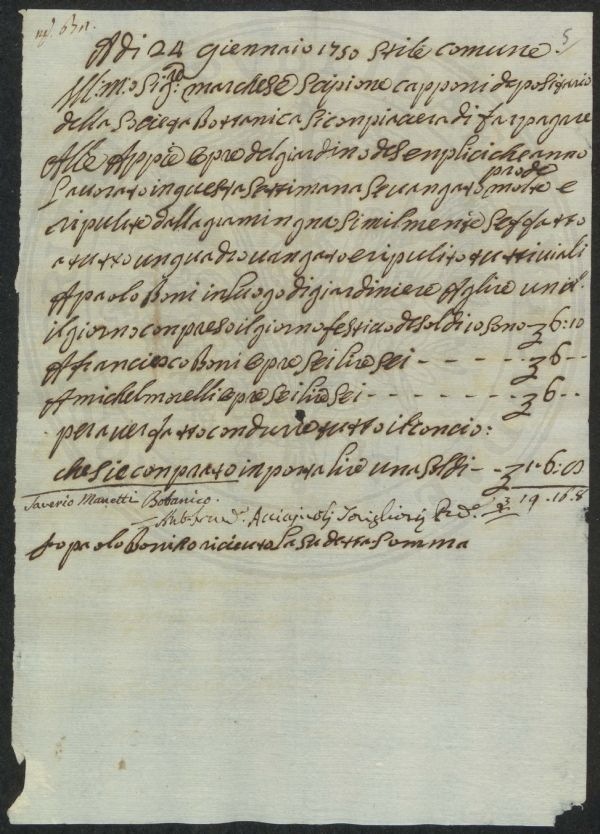 5
A di 24 giennaio 1750 stile comune
Ill:mo Sig:re marchese Scipione capponi depositario
della Società Bottanica Si conpiacera di far pagare
Alle Appie opre del giardino de Senplici che anno
prode
Lavorato in questa Settimana Se vangato molto e
ripulito dalla gramingna Similmente Se fatto
a tutto un quadro vangato e ripulito tutti viali
A paolo Boni in luogo di giardiniere A lire una
il giorno conpreso il giorno festivo de Soldi 10 Sono £ 6:10
A franciesco Boni opre Sei lire Sei - - - - - £ 6 - -
A michel morelli opre Sei lire Sei - - - - - - £ 6 - -
per aver fatto condurre tutto il concio:
che Sie conprato inporta lire una Soldi - - £ 1·6:8
Saverio Manetti Botanico.
£ 19.16.8
Io paolo Boni o riceuto La Su detta Somma